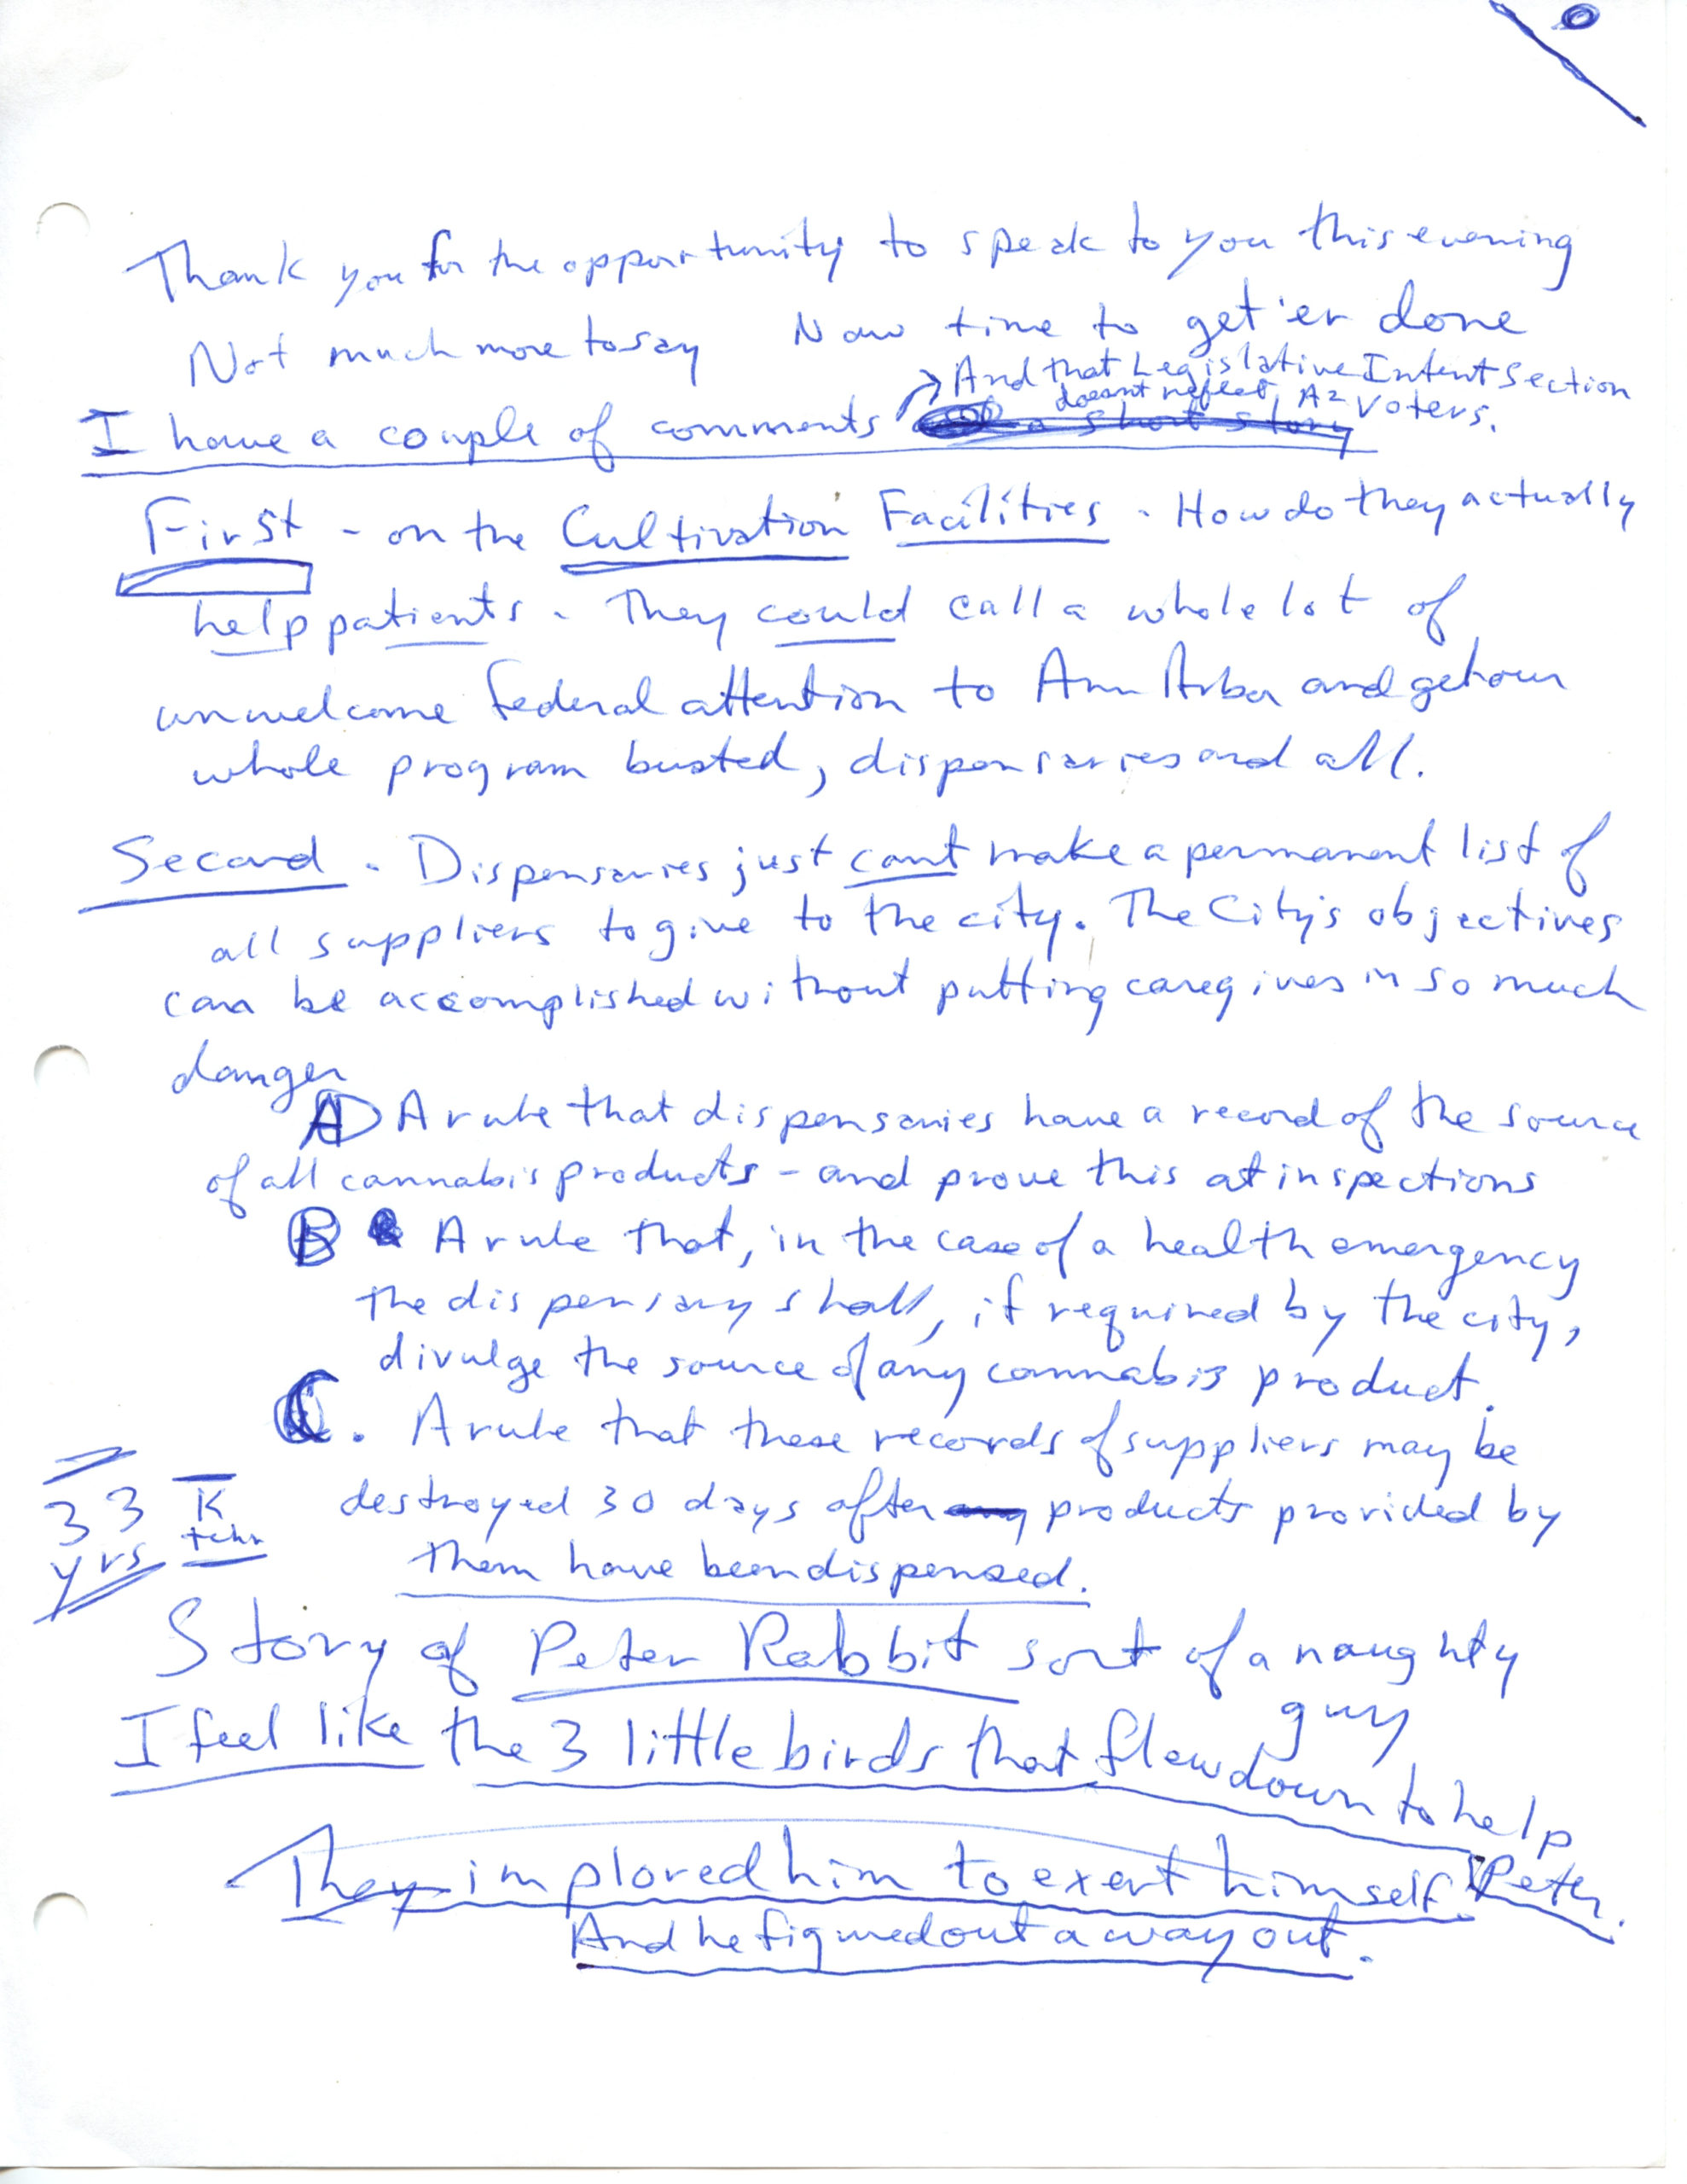 Thank you for the opportunity to speak to you this evening
Not much more to say Now time to get 'er done
And that Legislative Intent Section
doesn't reflect A2 voters.
I have a couple of comments a short story
First - on the Cultivation Facilities - How do they actually
help patients - They could call a whole lot of
unwelcome federal attention to Ann Arbor and get our
whole program busted, dispensaries and all.
Second - Dispensaries just can't make a permanent list of
all suppliers to give to the city. The City's objectives
can be accomplished without putting caregivers in so much
danger
A) A rule that dispensaries have a record of the source
of all cannabis products - and prove this at inspections
B A rule that, in the case of a health emergency
the dispensary shall, if required by the city,
divulge the source of any cannabis product.
C. A rule that these records of suppliers may be
destroyed 30 days after any products provided by
them have been dispensed.
33 K
yrs tchr
Story of Peter Rabbit sort of a naughty
guy
I feel like the 3 little birds that flew down to help
Peter.
They implored him to exert himself.
And he figured out a way out.